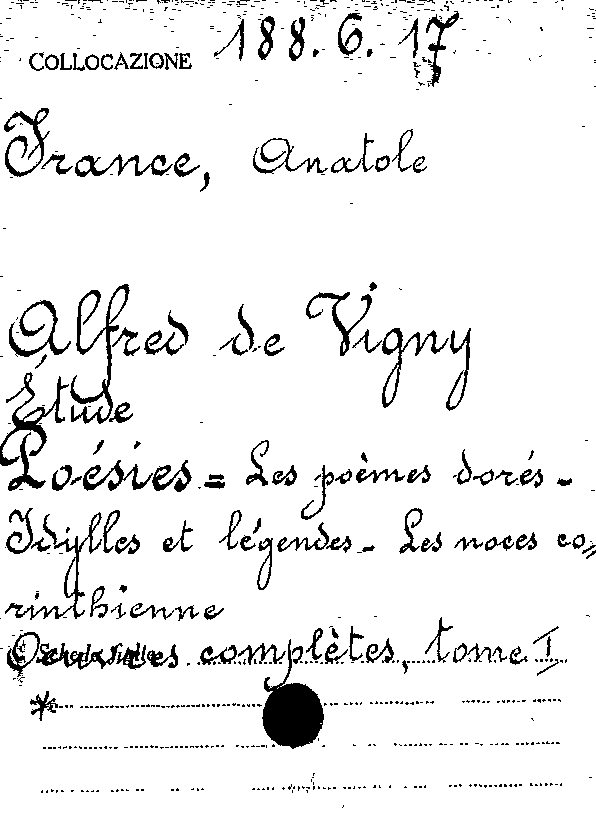 COLLOCAZIONE 188. 6. 17
France, Anatole
Alfred de Vigny
Étude
Poésies = Les poèmes dorés -
Idylles et légendes - Les noces co=
rinthienne
Oeuvres complètes, tome I
*